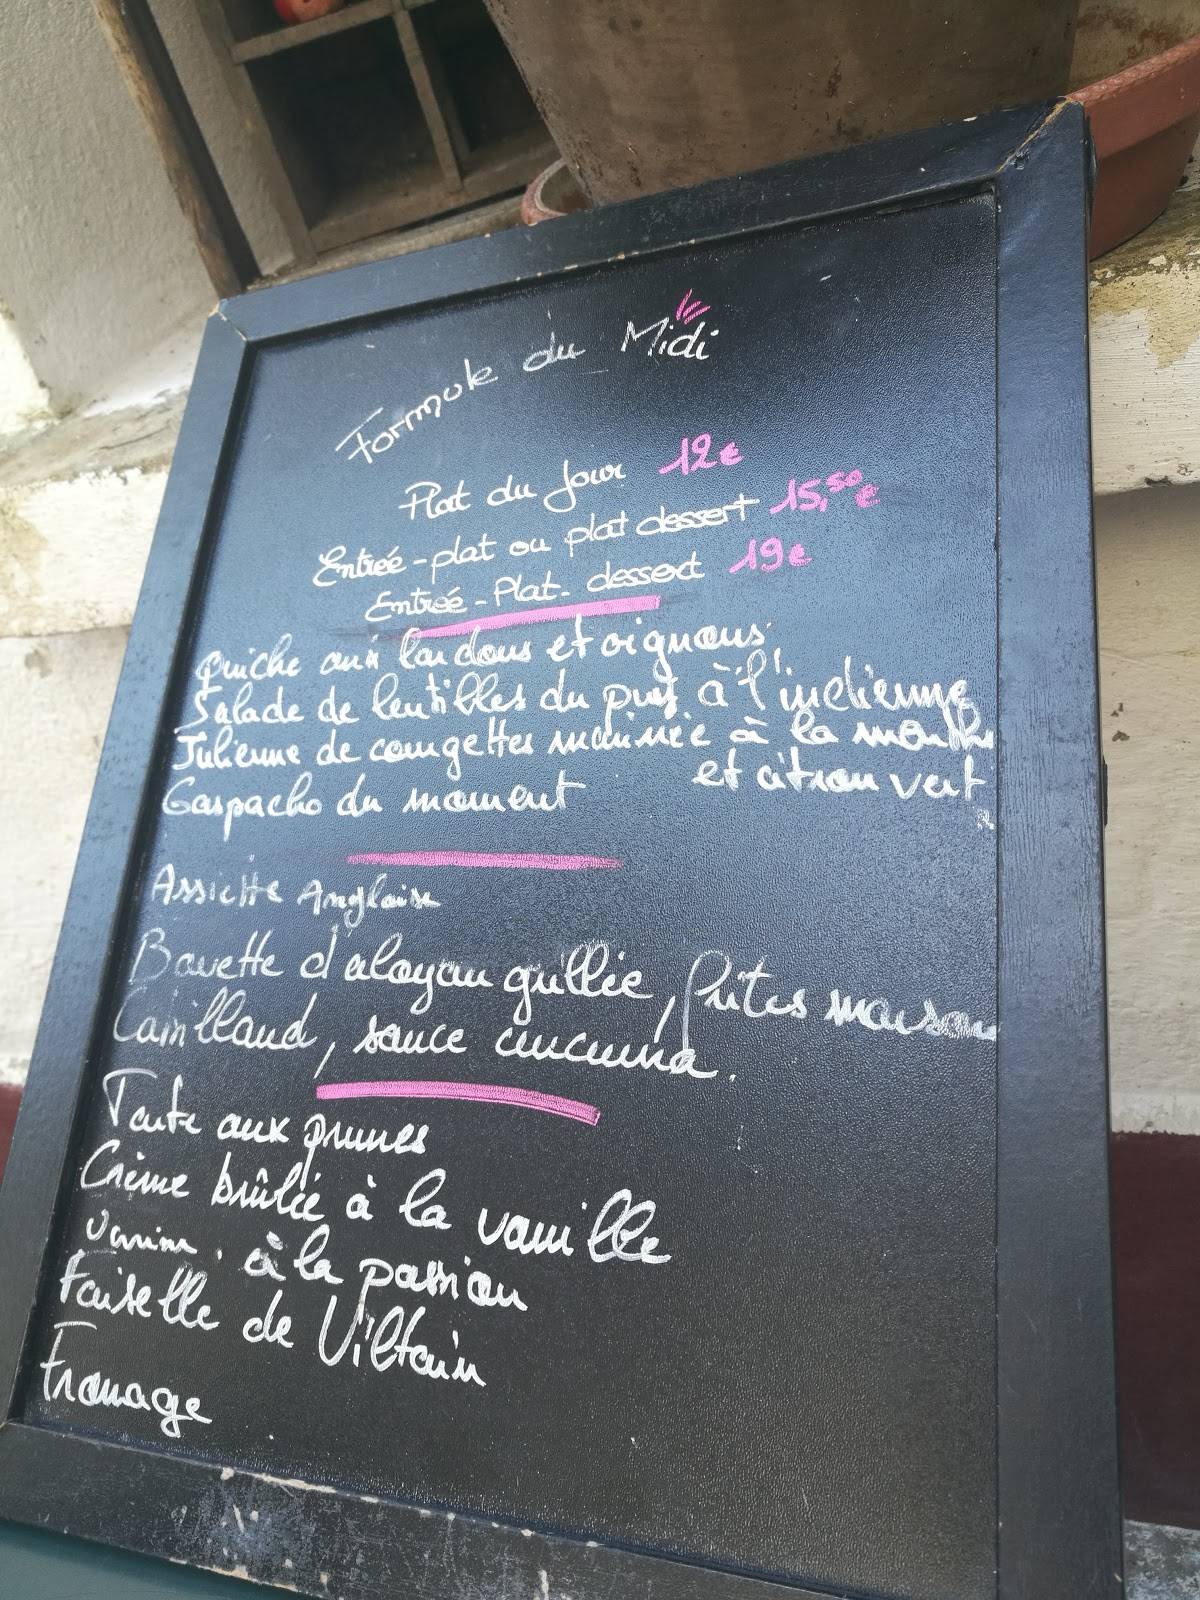 Formule du Midi
Plat du Jour 12€
Entrée - plat ou plat dessert 15,50€
Entrée - Plat - dessert 19€
Quiche aux lardons et oignons
Salade de lentilles du puy à l'indienne
Julienne de courgettes marinée à la menthe
et citron vert
Gaspacho du moment
Assiette Anglaise
Bavette d'aloyau grillée, frites maison
Cabillaud, sauce curcuma.
Tarte aux prunes
Crème brûlée à la vanille
à la passion
Faisselle de Viltain
Fromage